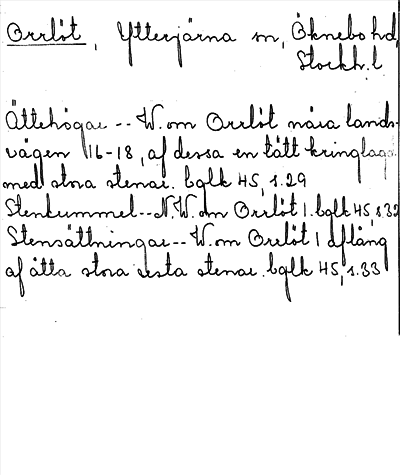 Orrlöt, Ytterjärna sn, Öknebo hd,
Stockh. l
Ättehögar -- W. om Orrlöt nära lands-
vägen 16-18, af dessa en tätt kringlagd
med stora stenar. bglk 45, s. 29
Stenkummel -- N.W. om Orrlöt 1. bglk 45, s 32
Stensättningar -- W. om Orrlöt 1 aflång
af åtta stora resta stenar. bglk 45, s. 33